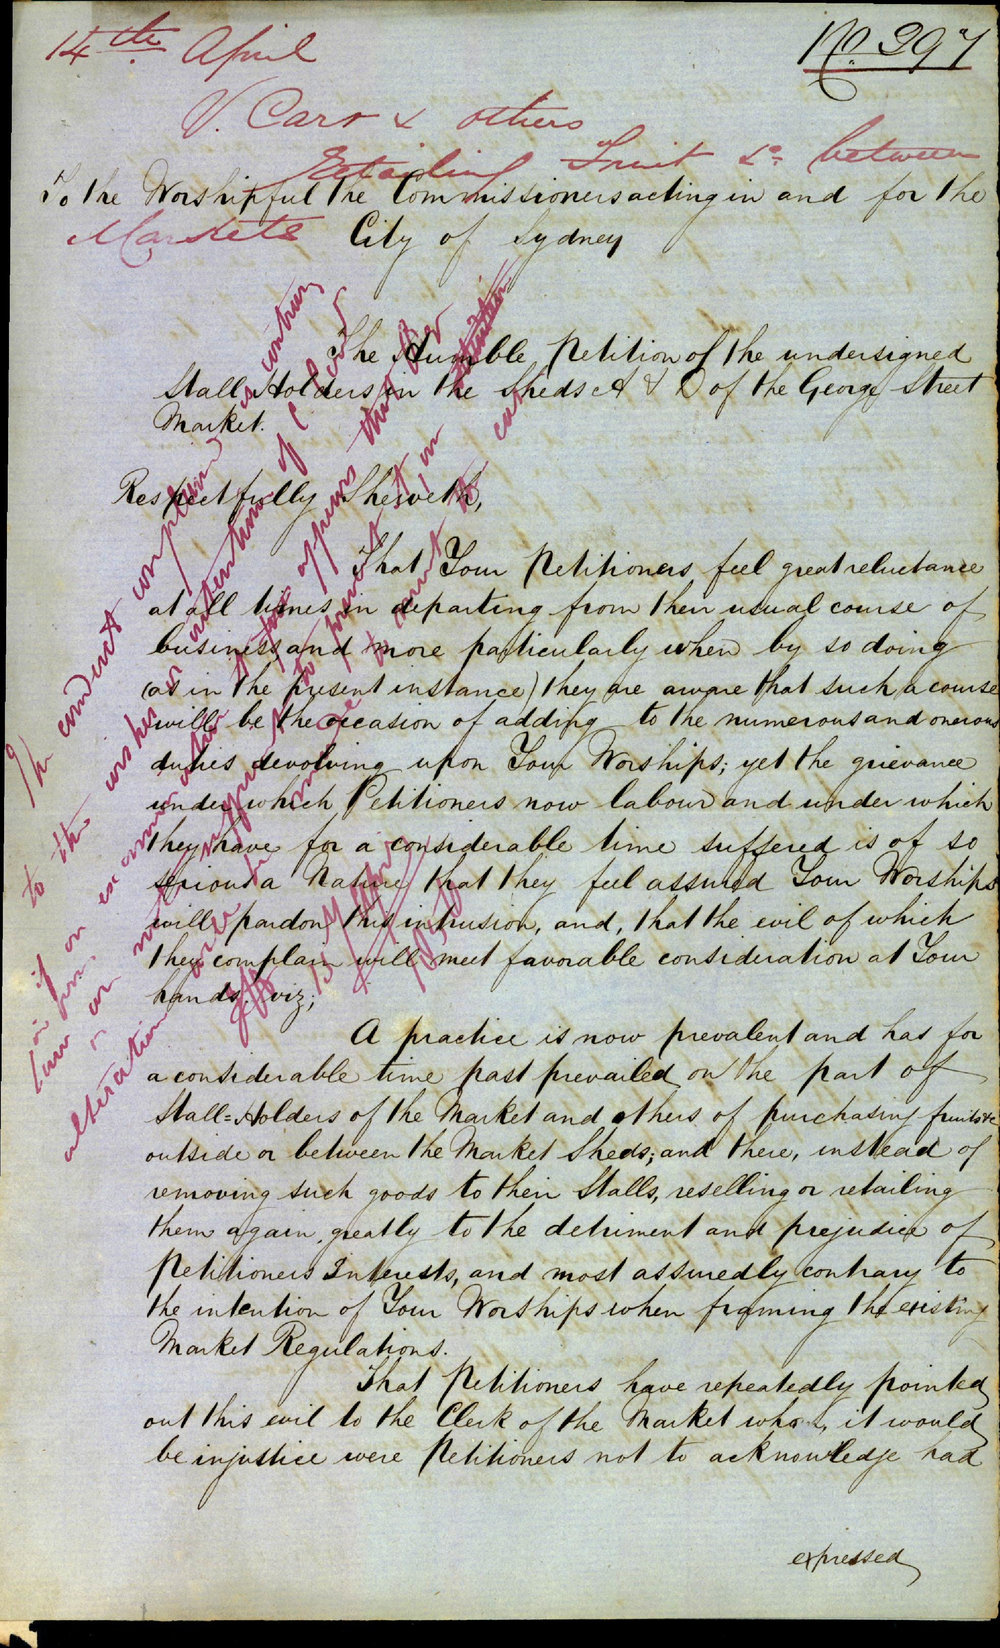 14th April
No. 397
V. Carr & others
Retailing Fruit &c between
Markets
To the Worshipful the Commissioners acting in and for the
City of Sydney
The Humble Petition of the undersigned
Stall Holders in the Sheds A & D of the George Street
Market.
Respectfully Sheweth,
That Your Petitioners feel great reluctance
at all times in departing from their usual course of
business and more particularly when by so doing
(as in the present instance) they are aware that such a course
will be the occasion of adding to the numerous and onerous
duties devolving upon Your Worships; yet the grievance
under which Petitioners now labour and under which
they have for a considerable time suffered is of so
serious a Nature that they feel assured Your Worships
will pardon this intrusion, and, that the evil of which
they complain will meet favorable consideration at Your
hands. viz;
A practice is now prevalent and has for
a considerable time past prevailed on the part of
Stall=Holders of the Market and others of purchasing fruits &c
outside or between the Market Sheds; and there, instead of
removing such goods to their Stalls, reselling or retailing
them again, greatly to the detriment and prejudice of
Petitioners Interests, and most assuredly contrary to
the intention of Your Worships when framing the existing
Market Regulations.
That Petitioners have repeatedly pointed
out this evil to the Clerk of the Market who, it would
be injustice were Petitioners not to acknowledge had
expressed
The conduct complained is contrary
to the wishes or intentions of
if on examination it appears that the
law
or an
alteration